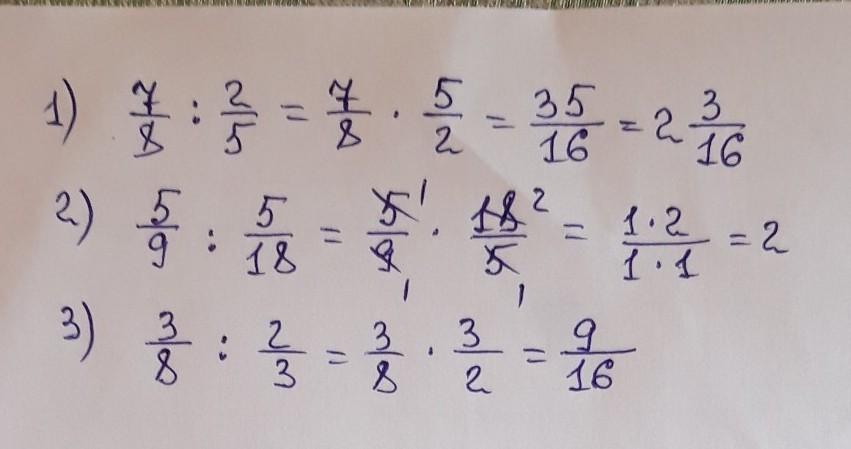 1) 7/8 : 2/5 = 7/8 · 5/2 = 35/16 = 2 3/16
2) 5/9 : 5/18 = 5̶¹/9̶₁ · 1̶8̶²/5̶₁ = 1·2/1·1 = 2
3) 3/8 : 2/3 = 3/8 · 3/2 = 9/16